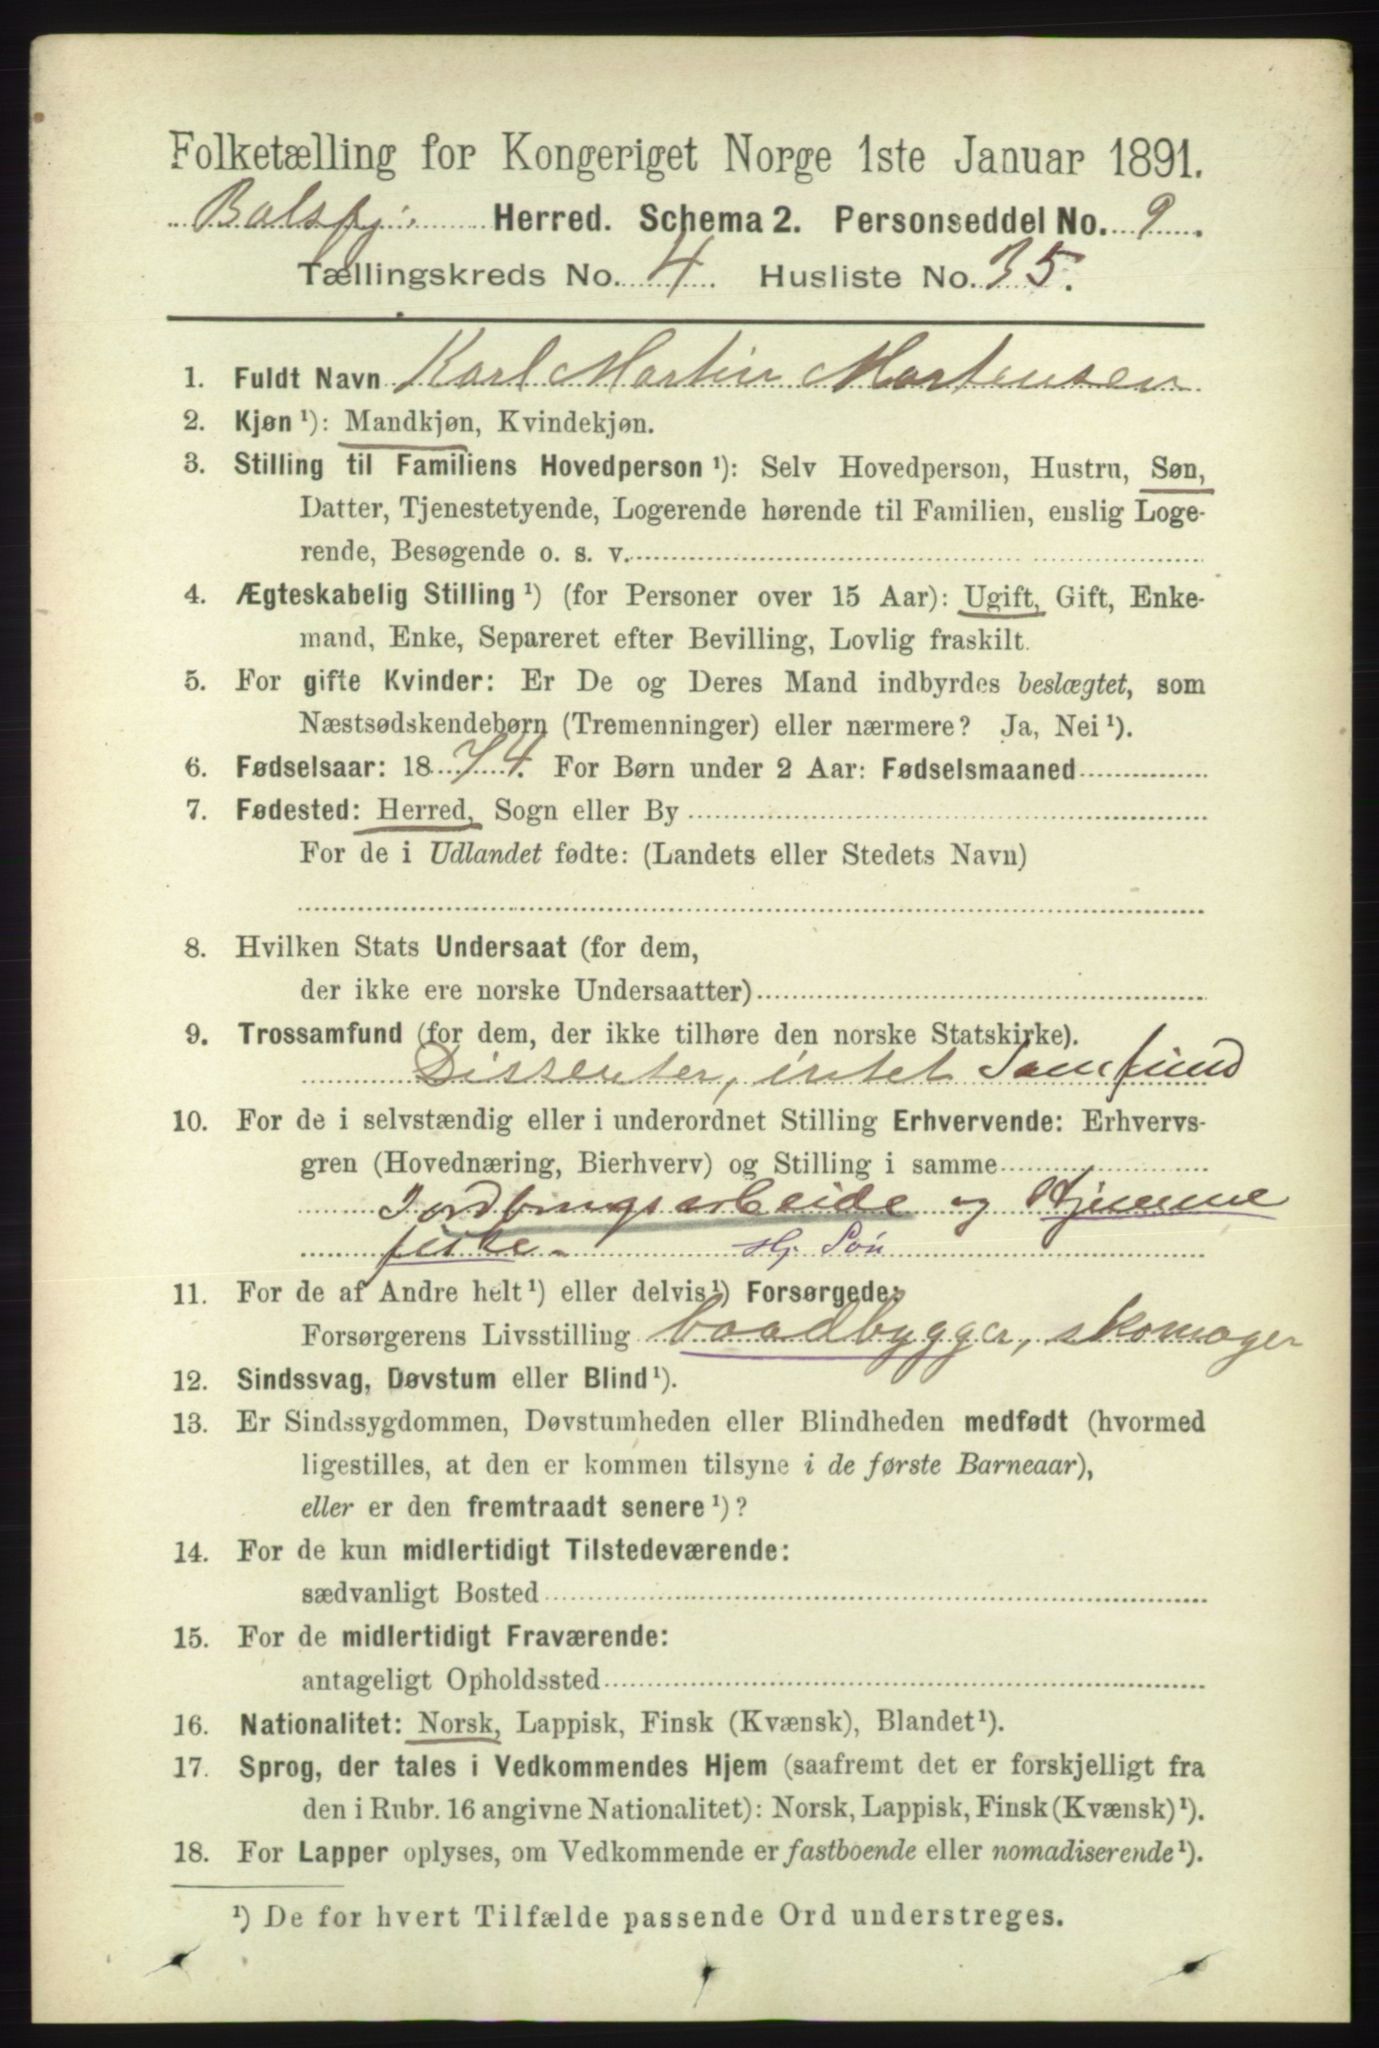 Folketælling for Kongeriget Norge 1ste Januar 1891.
Balsfj. Herred. Schema 2. Personseddel No. 9.
Tællingskreds No. 4. Husliste No. 35.
1. Fuldt Navn Karl Martin Mortensen
2. Kjøn ¹): Mandkjøn, Kvindekjøn.
3. Stilling til Familiens Hovedperson ¹): Selv Hovedperson, Hustru, Søn,
Datter, Tjenestetyende, Logerende hørende til Familien, enslig Loge-
rende, Besøgende o. s. v.
4. Ægteskabelig Stilling ¹) (for Personer over 15 Aar): Ugift, Gift, Enke-
mand, Enke, Separeret efter Bevilling, Lovlig fraskilt.
5. For gifte Kvinder: Er De og Deres Mand indbyrdes beslægtet, som
Næstsødskendebørn (Tremenninger) eller nærmere? Ja, Nei ¹).
6. Fødselsaar: 1874. For Børn under 2 Aar: Fødselsmaaned
7. Fødested: Herred, Sogn eller By
For de i Udlandet fødte: (Landets eller Stedets Navn)
8. Hvilken Stats Undersaat (for dem,
der ikke ere norske Undersaatter)
9. Trossamfund (for dem, der ikke tilhøre den norske Statskirke).
Dissenter, intet Samfund
10. For de i selvstændig eller i underordnet Stilling Erhvervende: Erhvervs-
gren (Hovednæring, Bierhverv) og Stilling i samme
Jordbrugsarbeide og Hjemme
fiske - Hj. Søn
11. For de af Andre helt ¹) eller delvis ¹) Forsørgede:
Forsørgerens Livsstilling baadbygger, skomager
12. Sindssvag, Døvstum eller Blind ¹).
13. Er Sindssygdommen, Døvstumheden eller Blindheden medfødt (hvormed
ligestilles, at den er kommen tilsyne i de første Barneaar),
eller er den fremtraadt senere ¹)?
14. For de kun midlertidigt Tilstedeværende:
sædvanligt Bosted
15. For de midlertidigt Fraværende:
antageligt Opholdssted
16. Nationalitet: Norsk, Lappisk, Finsk (Kvænsk), Blandet ¹).
17. Sprog, der tales i Vedkommendes Hjem (saafremt det er forskjelligt fra
den i Rubr. 16 angivne Nationalitet): Norsk, Lappisk, Finsk (Kvænsk) ¹).
18. For Lapper oplyses, om Vedkommende er fastboende eller nomadiserende ¹).
¹) De for hvert Tilfælde passende Ord understreges.